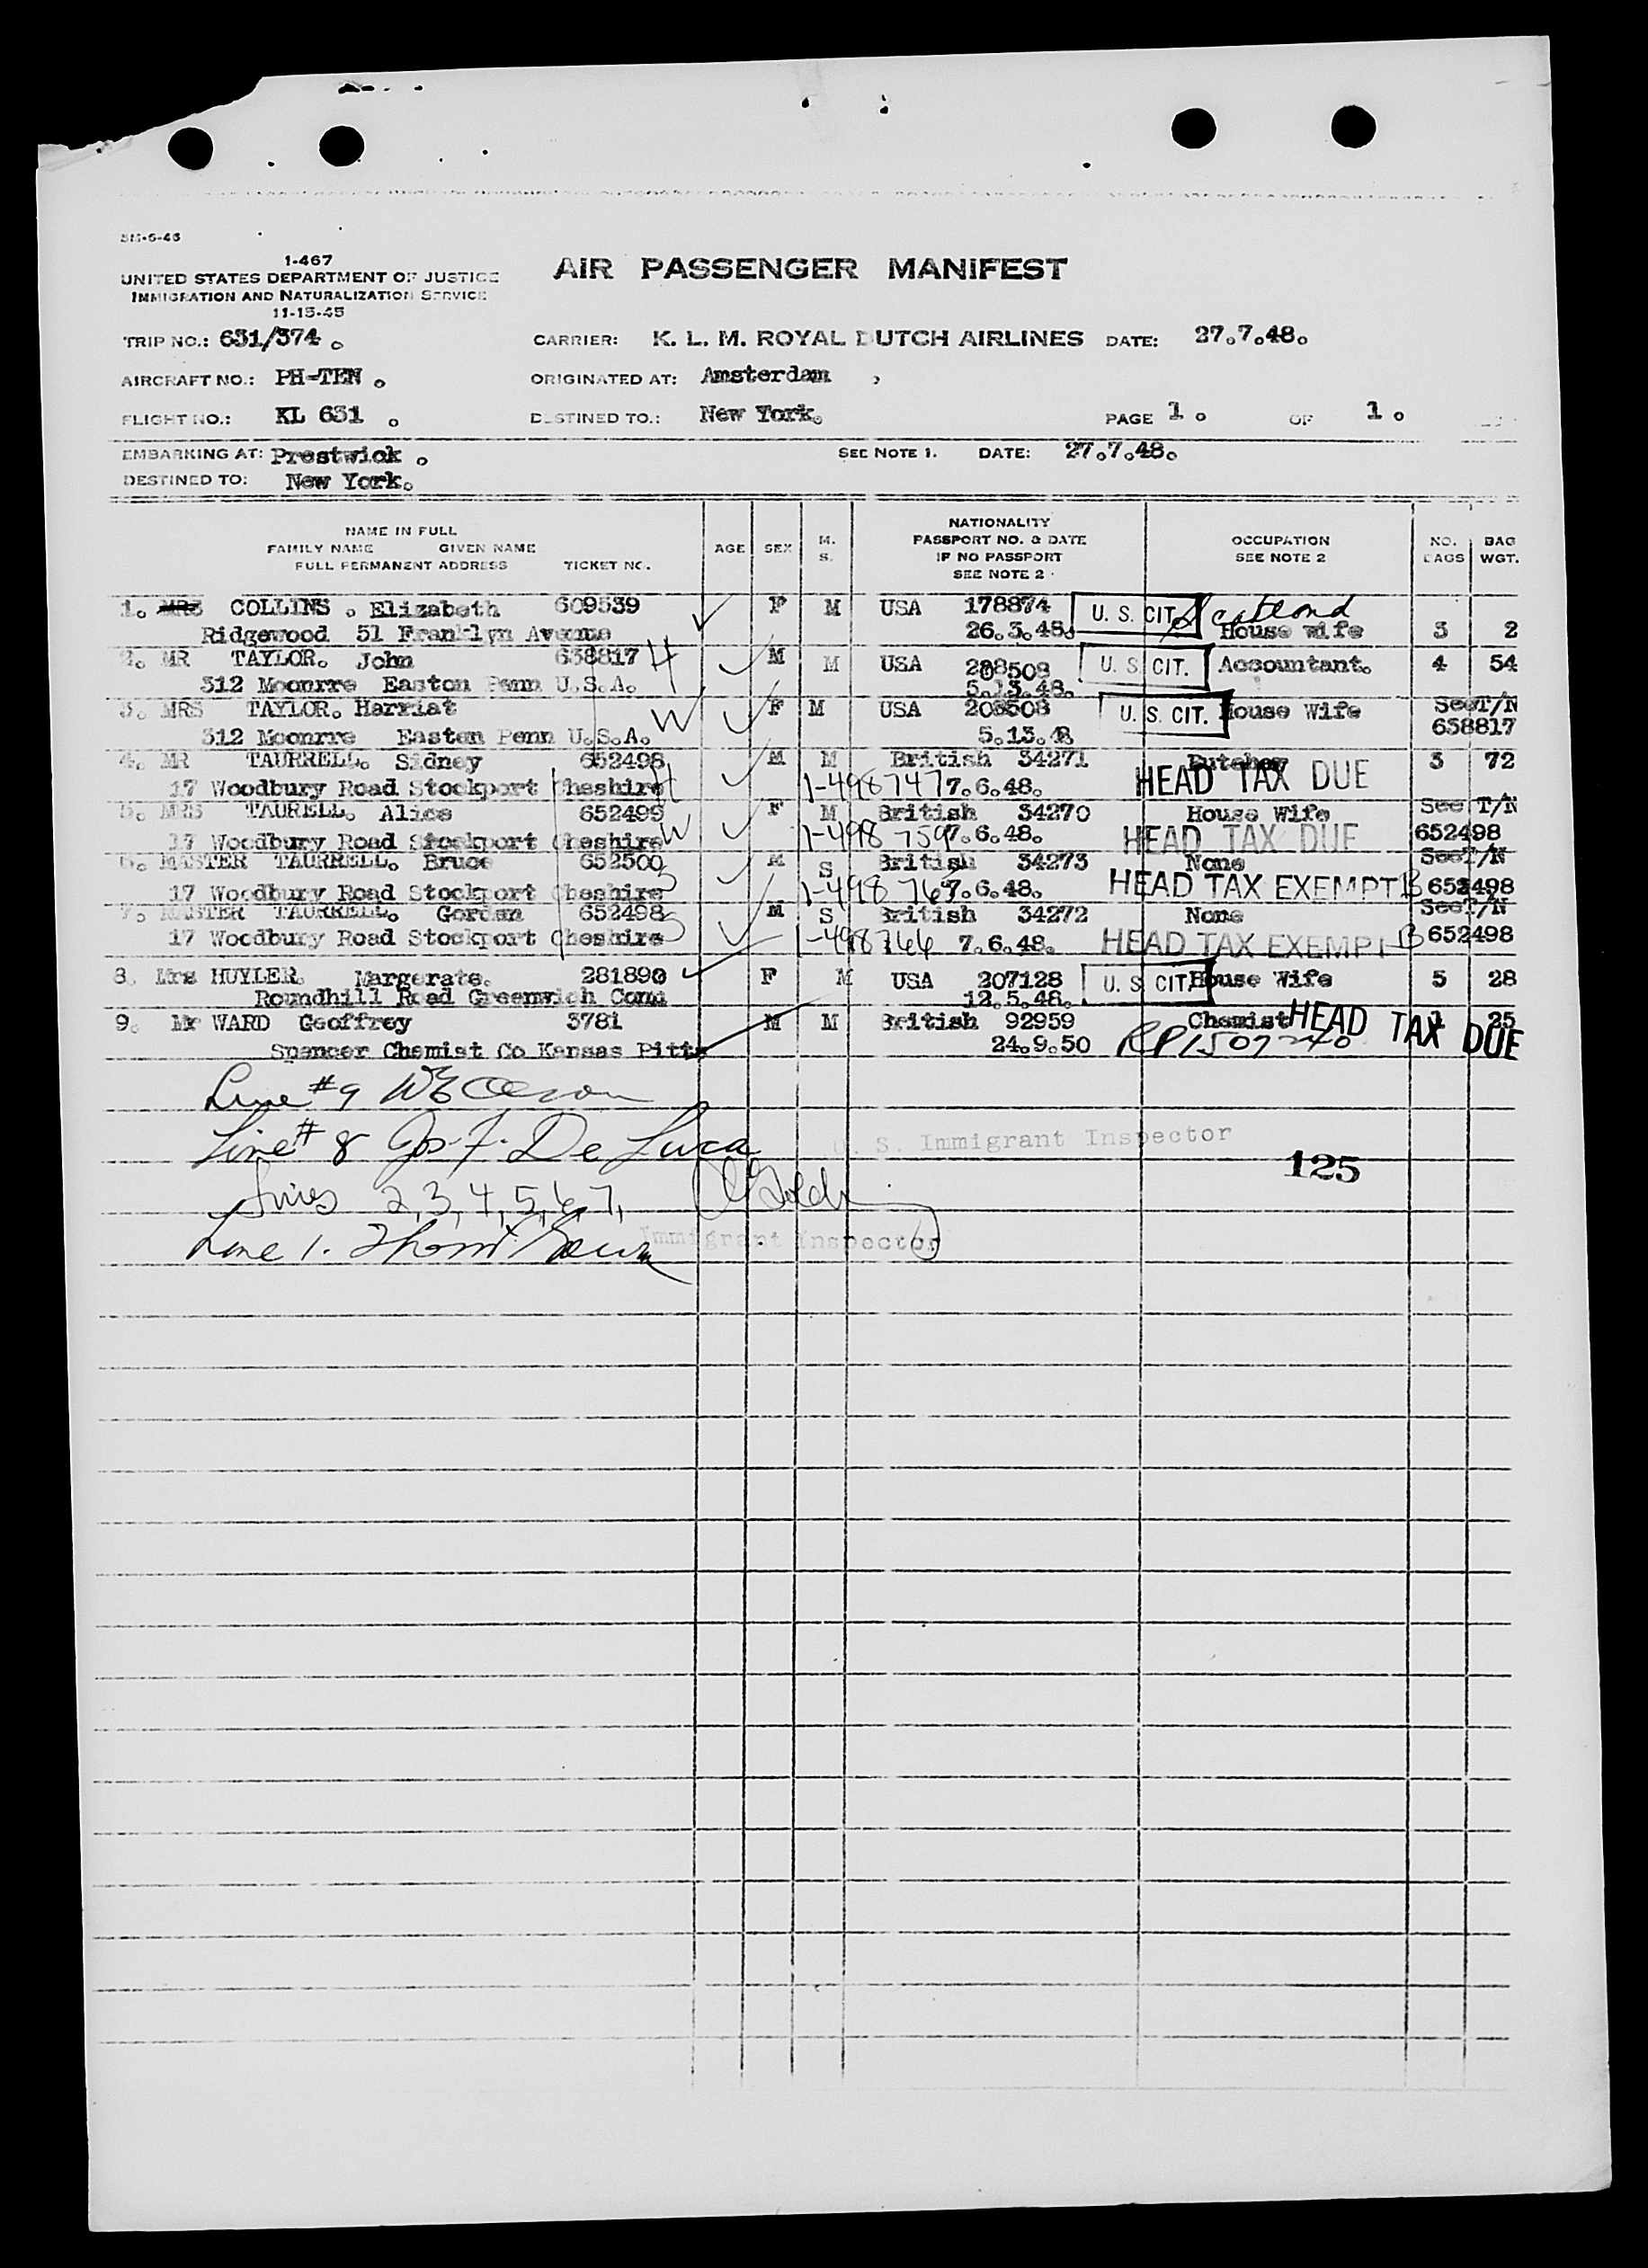 1-467
UNITED STATES DEPARTMENT OF JUSTICE
IMMIGRATION AND NATURALIZATION SERVICE
11-15-45
AIR PASSENGER MANIFEST
TRIP NO.: 631/374. CARRIER: K. L. M. ROYAL DUTCH AIRLINES DATE: 27.7.48.
AIRCRAFT NO.: PH-TEN. ORIGINATED AT: Amsterdam
FLIGHT NO.: KL 631. DESTINED TO.: New York. PAGE 1. OF 1.
EMBARKING AT: Prestwick. SEE NOTE 1. DATE: 27.7.48.
DESTINED TO: New York.
NAME IN FULL
FAMILY NAME GIVEN NAME
FULL PERMANENT ADDRESS TICKET NO.
AGE SEX M. S.
NATIONALITY
PASSPORT NO. & DATE
IF NO PASSPORT
SEE NOTE 2
OCCUPATION
SEE NOTE 2
NO. BAGS
BAG WGT.
1. MRS COLLINS. Elizabeth 609539 F M USA 178874 U. S. CIT.
Ridgewood 51 Franklyn Avenue 26.3.48. House wife 3 2
2. MR TAYLOR. John 638817 H M M USA 208509 U. S. CIT. Accountant. 4 54
312 Moonrre Easton Penn U.S.A. 5.13.48.
3. MRS TAYLOR. Harriat W F M USA 208508 U. S. CIT. House Wife See T/N
312 Moonrre Easton Penn U.S.A. 5.13.48. 638817
4. MR TAURRELL. Sidney 652498 M M British 34271 Butcher 3 72
17 Woodbury Road Stockport Cheshire H 1-498747 7.6.48. HEAD TAX DUE
5. MRS TAURELL. Alice 652499 F M British 34270 House Wife See T/N
17 Woodbury Road Stockport Cheshire W 1-498759 7.6.48. HEAD TAX DUE 652498
6. MASTER TAURRELL. Bruce 652500 M S British 34273 None See T/N
17 Woodbury Road Stockport Cheshire 1-498763 7.6.48. HEAD TAX EXEMPT B 652498
7. MASTER TAURRELL. Gordan 652498 M S British 34272 None See T/N
17 Woodbury Road Stockport Cheshire 1-498766 7.6.48. HEAD TAX EXEMPT B 652498
8. Mrs HUYLER. Margerate. 281890 F M USA 207128 U. S. CIT. House Wife 5 28
Roundhill Road Greenwich Conn 12.5.48.
9. Mr WARD Geoffrey 3781 M M British 92959 Chemist HEAD TAX DUE 1 25
Spencer Chemist Co Kansas Pitts 24.9.50 RP1507240
Line #9
Line # 8 Jos. F. De Luca U. S. Immigrant Inspector
125
Lines 2,3,4,5,6,7,
Line 1. Immigrant Inspector